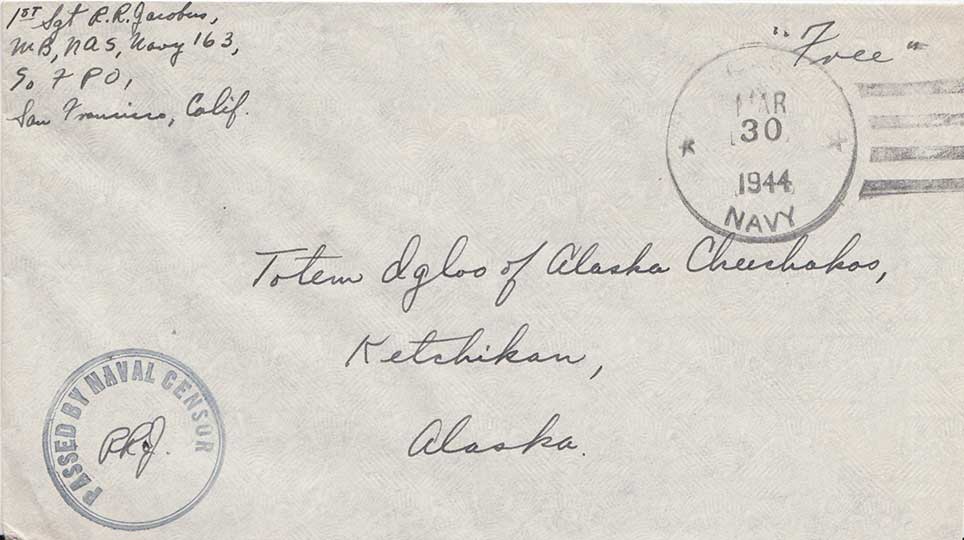 1ST Sgt R.R. Jacobus,
MB, NAS, Navy 163,
℅ F P O,
San Francisco, Calif.
"Free"
MAR
30
1944
NAVY
Totem Igloo of Alaska Cheechakos,
Ketchikan,
Alaska.
PASSED BY NAVAL CENSOR
RRJ.